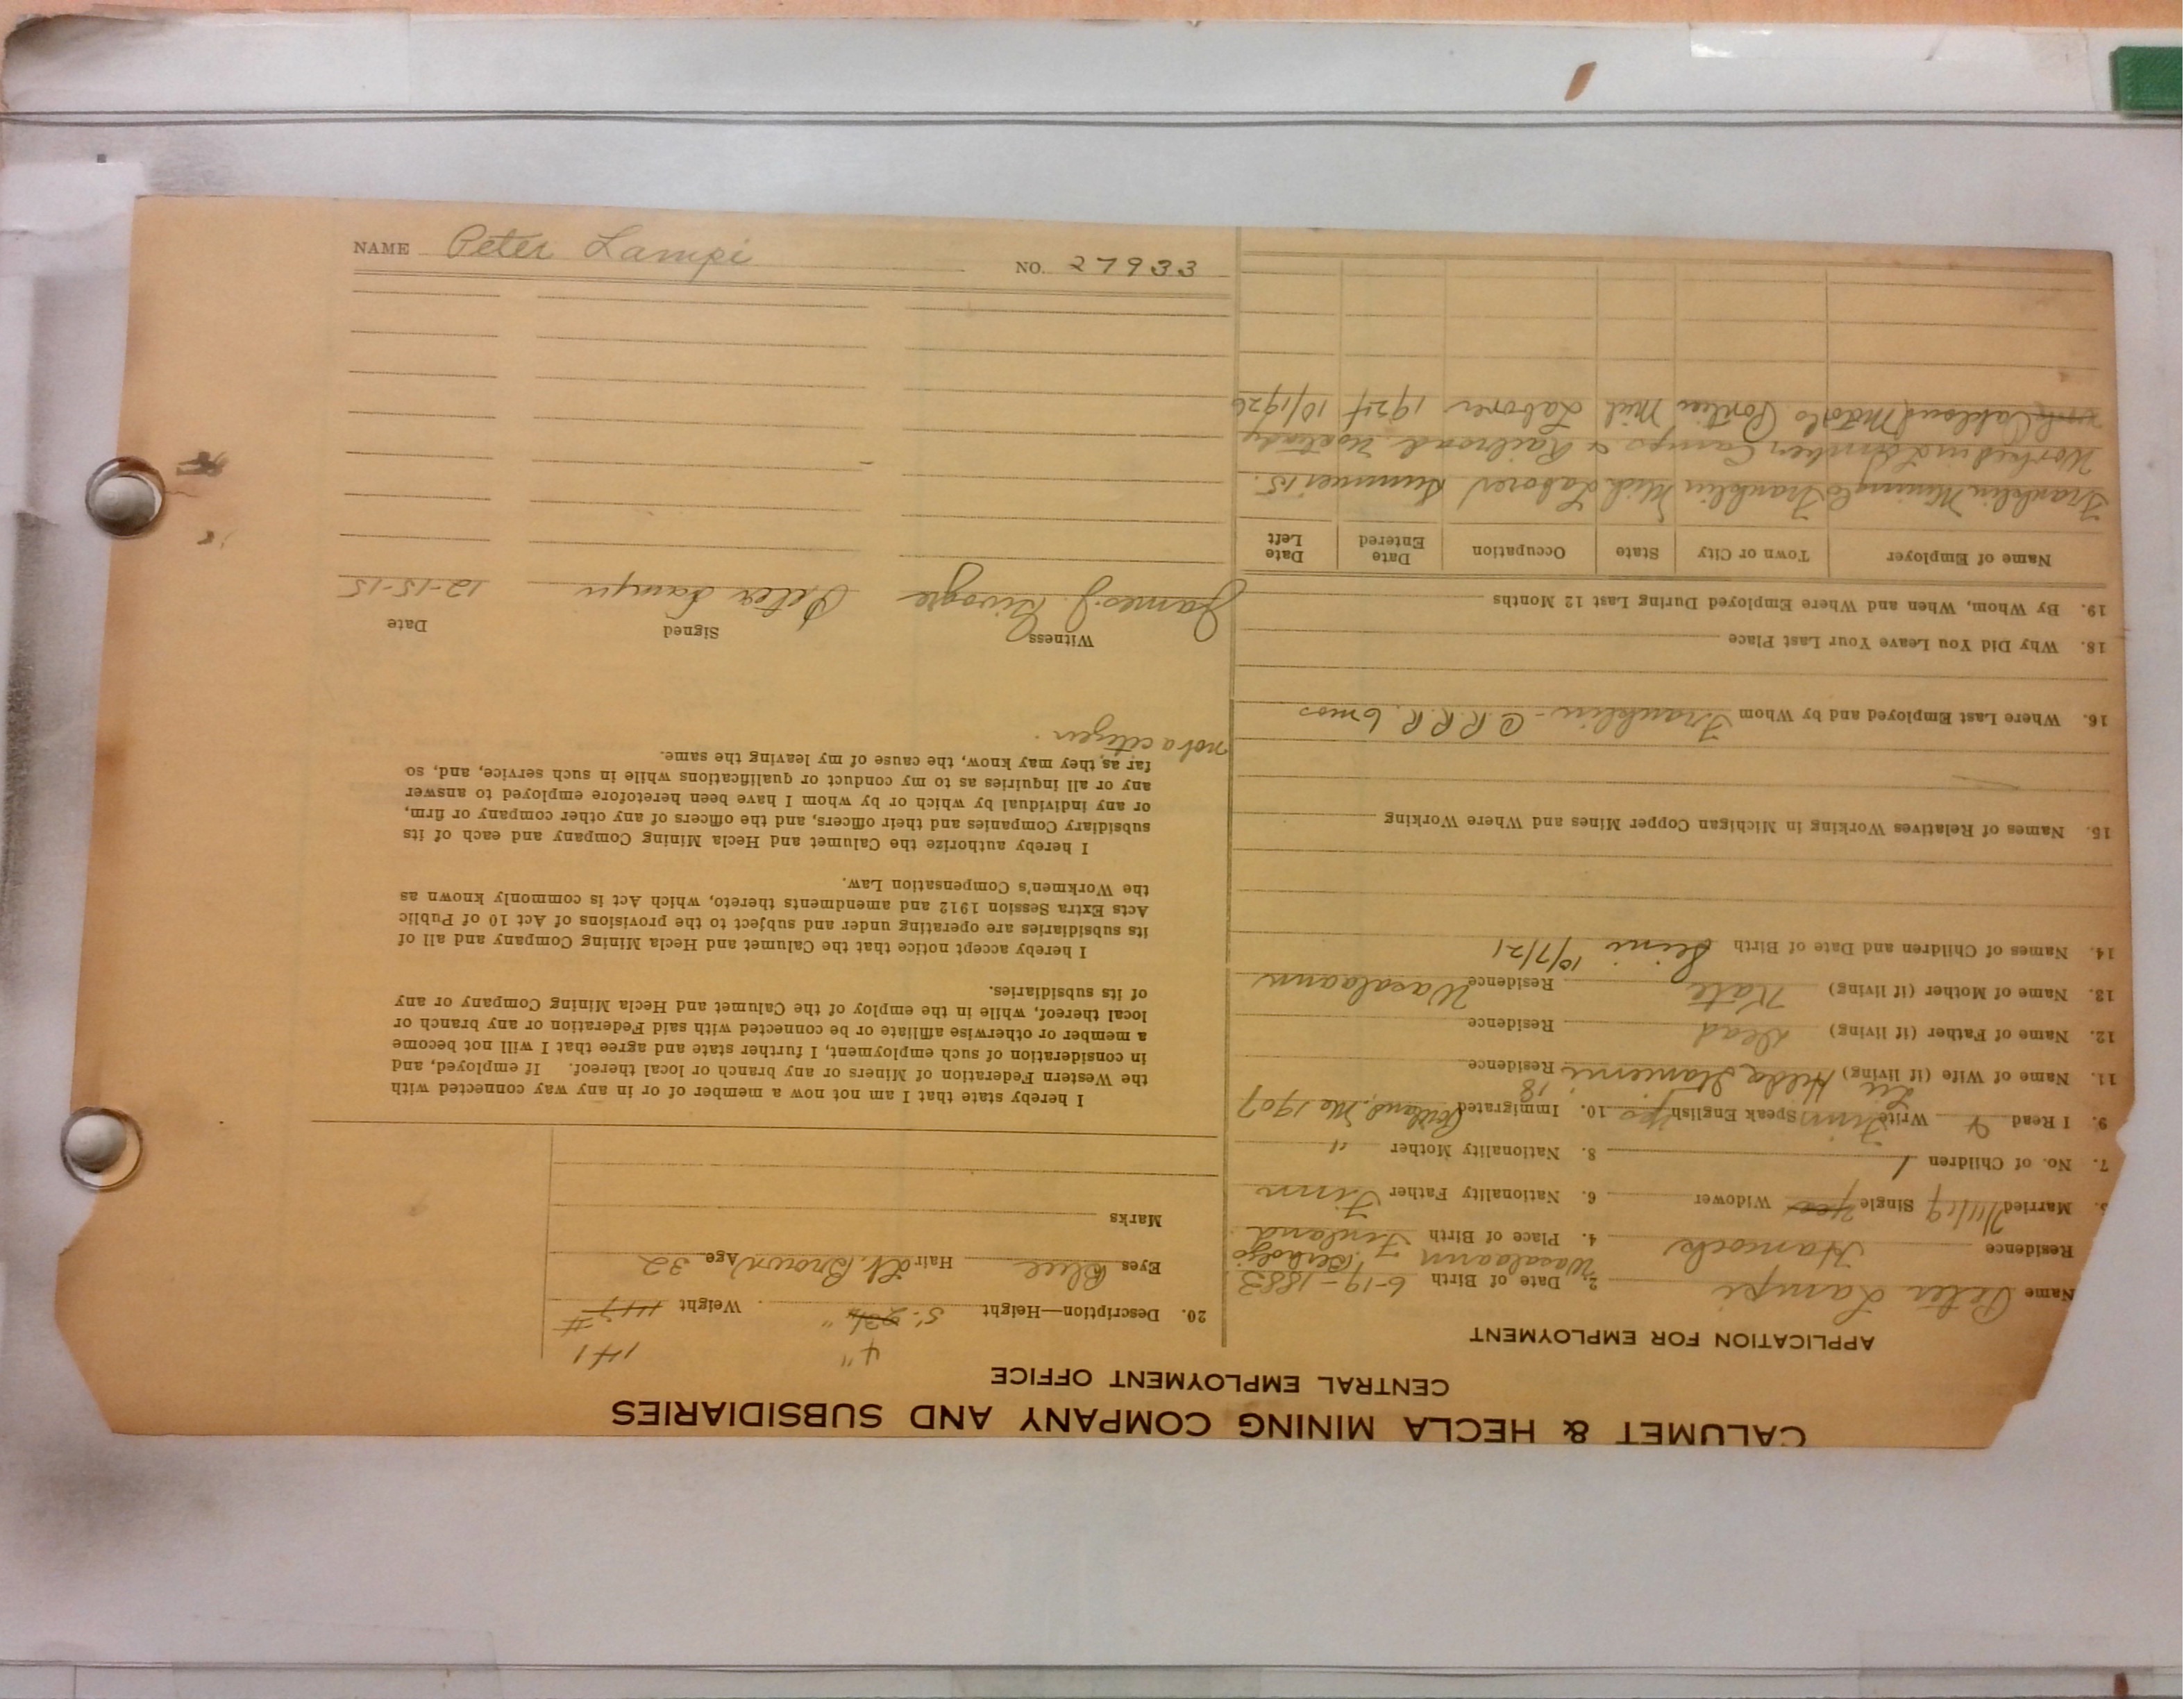 CALUMET & HECLA MINING COMPANY AND SUBSIDIARIES
CENTRAL EMPLOYMENT OFFICE
APPLICATION FOR EMPLOYMENT
Name Peter Lampi 2. Date of Birth 6-19-1883
Wasalaani
Residence Hancock 4. Place of Birth Finland
5. Married Single yes Widower 6. Nationality Father Finn
7. No. of Children 1 8. Nationality Mother "
9. I Read & Write Finn Speak English 10. Immigrated Portland, Me 1907
11. Name of Wife (if living) Hilda Residence
12. Name of Father (if living) Dead Residence
13. Name of Mother (if living) Kate Residence Wasalaani
14. Names of Children and Date of Birth 10/7/21
15. Names of Relatives Working in Michigan Copper Mines and Where Working
16. Where Last Employed and by Whom Franklin - C.R.R.R. 6 mos
18. Why Did You Leave Your Last Place
19. By Whom, When and Where Employed During Last 12 Months
Name of Employer Town or City State Occupation Date Entered Date Left
Franklin Mining Co Franklin Mich Laborer Summer 15.
Worked in Lumber Camps & Railroad
Oakland Motors Pontiac Mich Laborer 1924 10/1926
4" 141
20. Description—Height 5'- Weight 147 #
Eyes Blue Hair Lt. Brown Age 32
Marks
I hereby state that I am not now a member of or in any way connected with
the Western Federation of Miners or any branch or local thereof. If employed, and
in consideration of such employment, I further state and agree that I will not become
a member or otherwise affiliate or be connected with said Federation or any branch or
local thereof, while in the employ of the Calumet and Hecla Mining Company or any
of its subsidiaries.
I hereby accept notice that the Calumet and Hecla Mining Company and all of
its subsidiaries are operating under and subject to the provisions of Act 10 of Public
Acts Extra Session 1912 and amendments thereto, which Act is commonly known as
the Workmen's Compensation Law.
I hereby authorize the Calumet and Hecla Mining Company and each of its
subsidiary Companies and their officers, and the officers of any other company or firm,
or any individual by which or by whom I have been heretofore employed to answer
any or all inquiries as to my conduct or qualifications while in such service, and, so
far as they may know, the cause of my leaving the same.
not a citizen.
Witness Signed Date
James J. Peter Lampi 12-15-15
NAME Peter Lampi NO. 27933